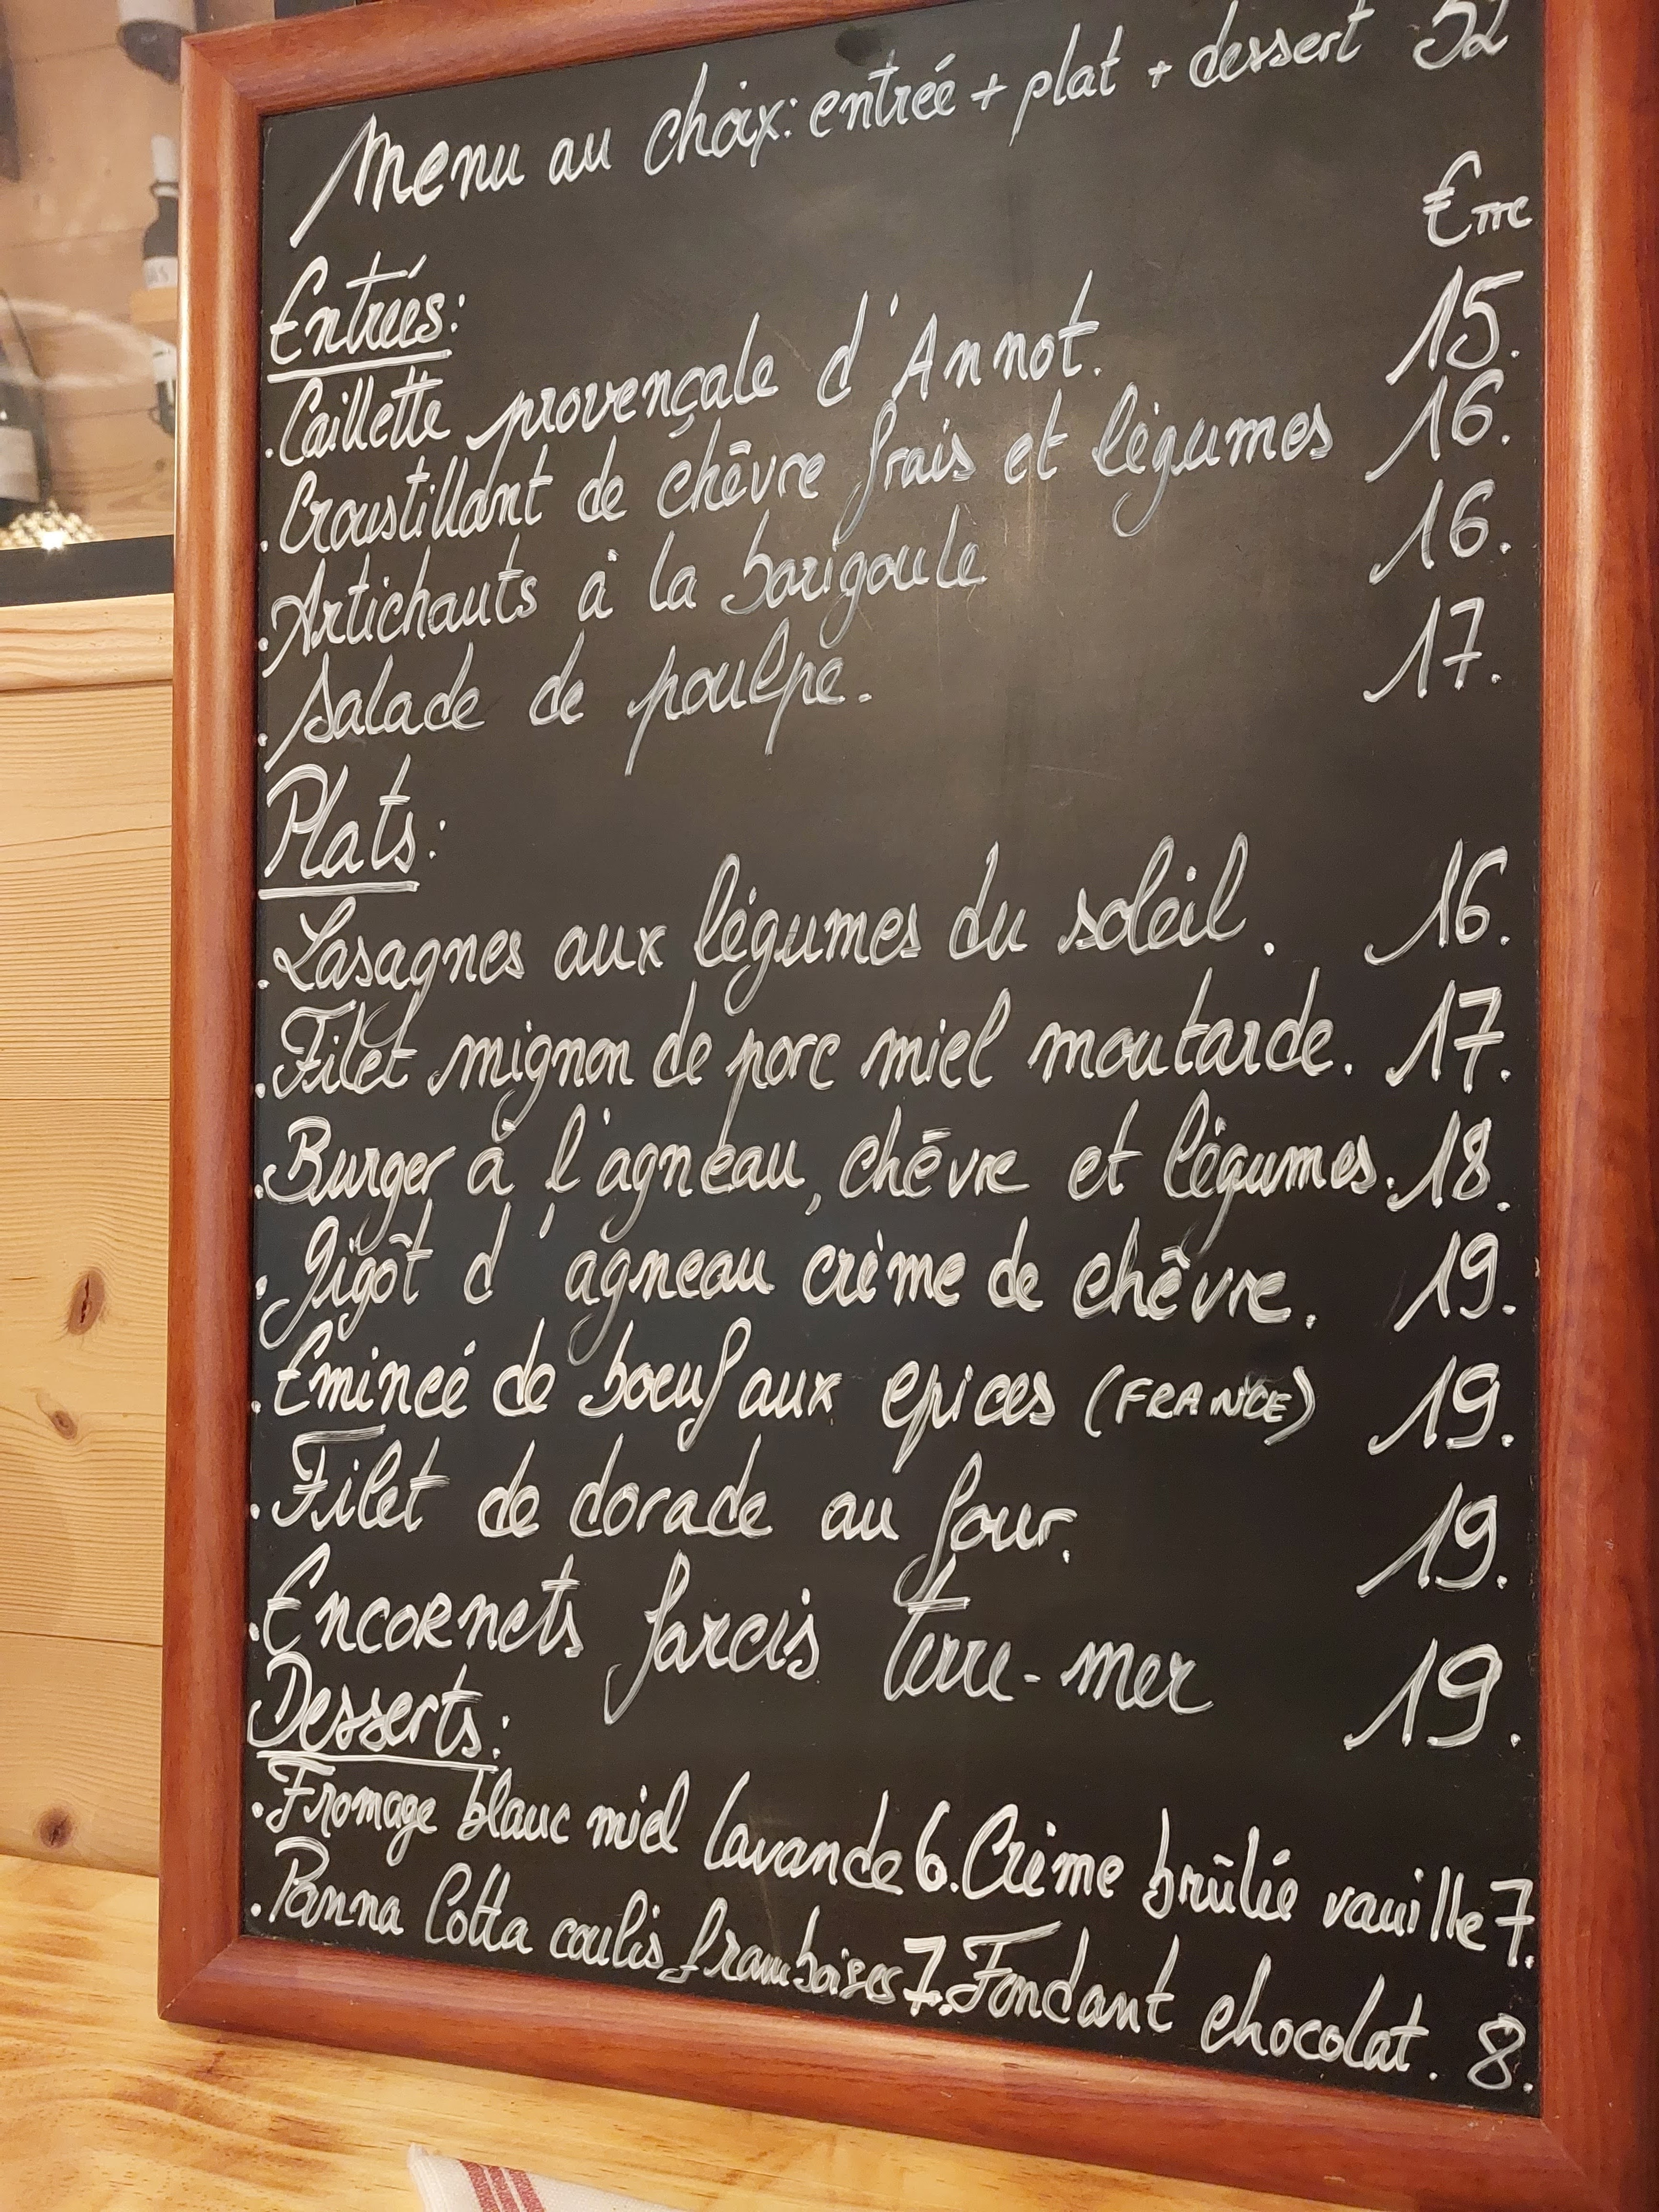 Menu au choix: entrée + plat + dessert 32
€ TTC
Entrées:
. Caillette provençale d'Annot. 15.
. Croustillant de chèvre frais et légumes 16.
. Artichauts à la barigoule 16.
. Salade de poulpe. 17.
Plats:
. Lasagnes aux légumes du soleil. 16.
. Filet mignon de porc miel moutarde. 17.
. Burger à l'agneau, chèvre et légumes. 18.
. Gigôt d'agneau crème de chèvre. 19.
. Emincé de boeuf aux epices (FRANCE) 19.
. Filet de dorade au four. 19.
. Encornets farcis Terre-mer 19.
Desserts:
. Fromage blanc miel lavande 6. Crème brûlée vanille 7.
. Panna Cotta coulis framboises 7. Fondant chocolat. 8.